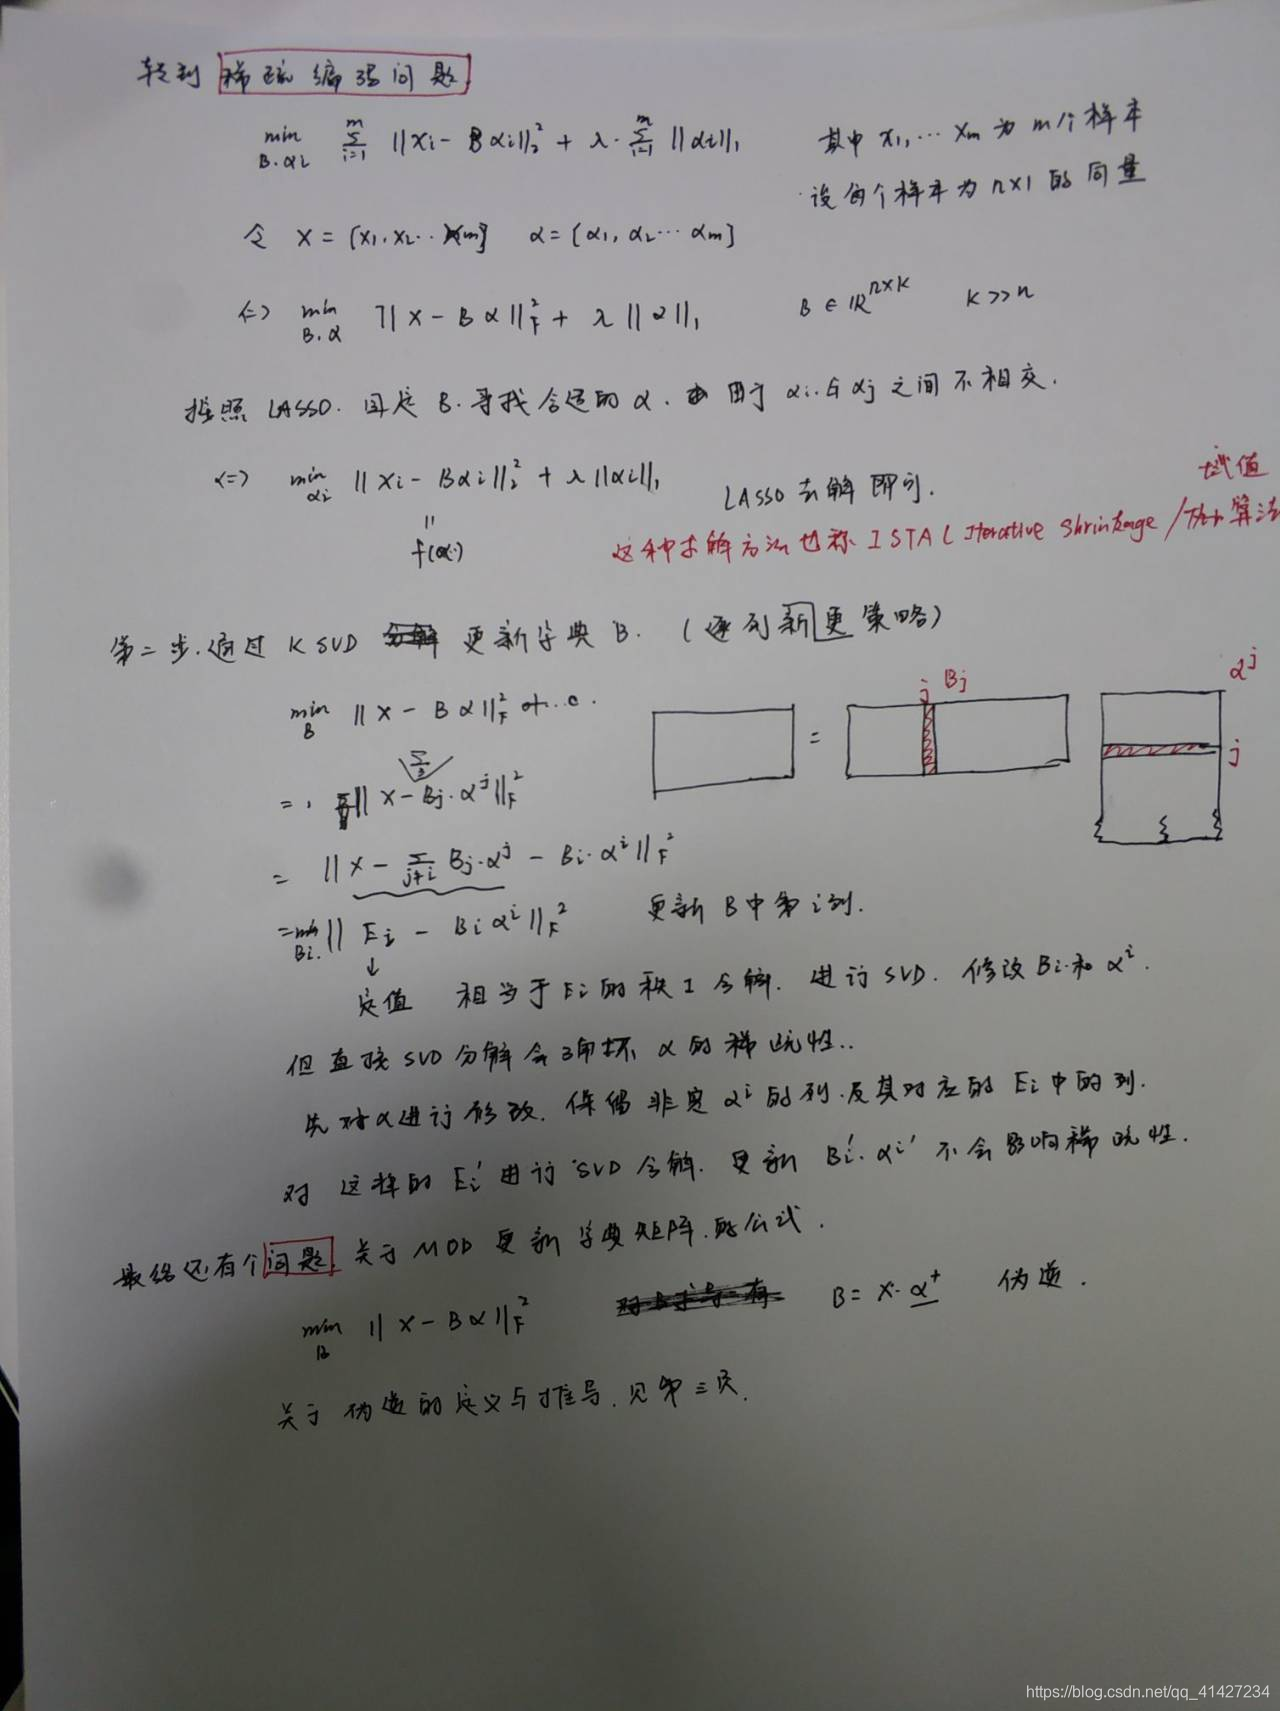 转到 稀疏编码问题
min B.αi Σ i=1 m ||xi - Bαi||₂² + λ· Σ i=1 m ||αi||₁ 其中 x₁,… xm 为 m个样本
设每个样本为 n×1 的向量
令 X = [x₁, x₂ ·· xm] α = [α₁, α₂ ··· αm]
<=> min B.α ||X - Bα||F² + λ||α||₁ B ∈ R^{n×K} K >> n
按照 LASSO. 固定 B. 寻找合适的 α. 由于 αi 与 αj 之间不相交.
<=> min αi ||xi - Bαi||₂² + λ||αi||₁ LASSO 去解即可.
|| 
f(αi)
阈值
这种求解方法也称 ISTA ( Iterative Shrinkage / 算法
第二步. 通过 K SVD 更新字典 B. (逐列新更策略)
min B ||X - Bα||F²
j Bj αj
= j
= || X - Σj Bj·α^j ||F²
= || X - Σ j≠i Bj·α^j - Bi·α^i ||F²
= min Bi. || Ei - Bi α^i ||F² 更新 B 中第 i 列.
↓
定值 相当于 Ei 的秩 1 分解. 进行 SVD. 修改 Bi 和 α^i.
但直接 SVD 分解会破坏 α 的稀疏性..
先对 α 进行修改. 保留非零 α^i 的列. 及其对应的 Ei 中的列.
对这样的 Ei' 进行 SVD 分解. 更新 Bi'. αi' 不会影响稀疏性.
最终还有个问题. 关于 MOD 更新字典矩阵的公式.
min B ||X - Bα||F² B = X·α⁺ 伪逆.
关于伪逆的定义与推导. 见第三页.
https://blog.csdn.net/qq_41427234